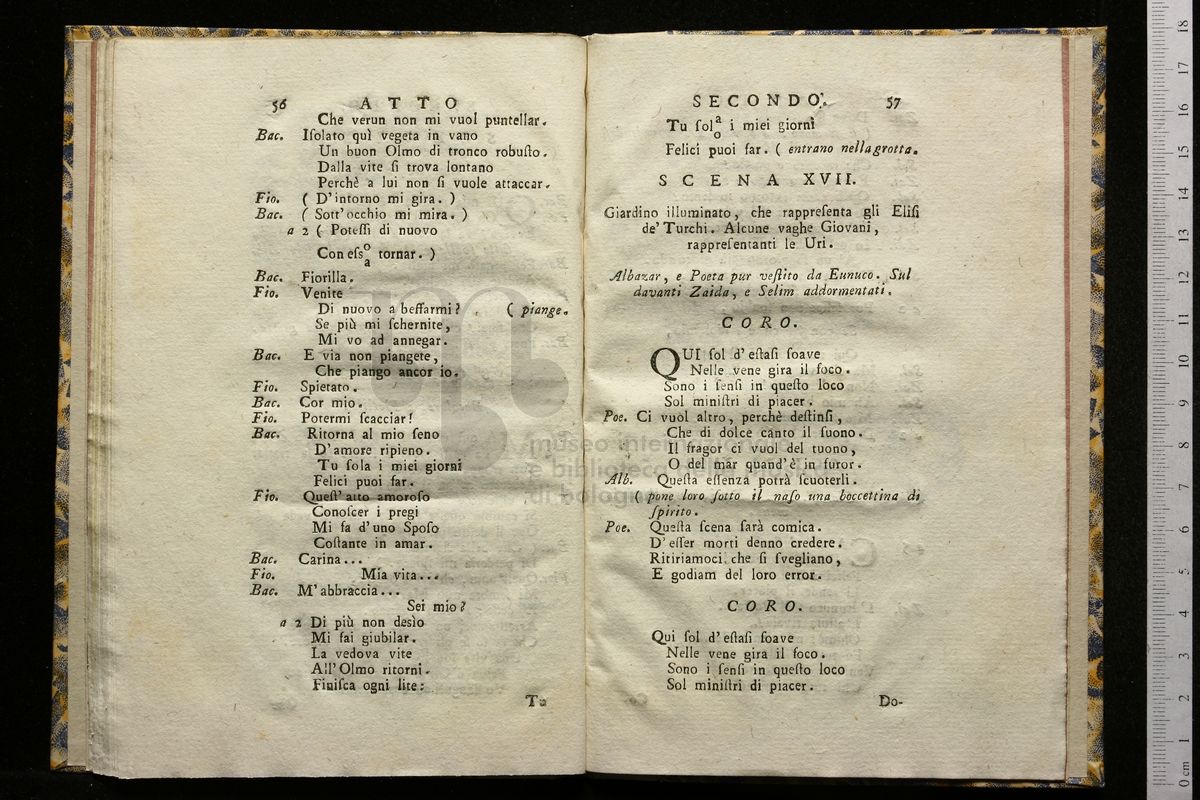 56 ATTO
Che verun non mi vuol puntellar.
Bac. Iſolato quì vegeta in vano
Un buon Olmo di tronco robuſto.
Dalla vite ſi trova lontano
Perchè a lui non ſi vuole attaccar.
Fio. ( D'intorno mi gira. )
Bac. ( Sott'occhio mi mira. )
a 2 ( Poteſſi di nuovo
Con eſs o/a tornar. )
Bac. Fiorilla.
Fio. Venite
Di nuovo a beffarmi? ( piange.
Se più mi ſchernite,
Mi vo ad annegar.
Bac. E via non piangete,
Che piango ancor io.
Fio. Spietato.
Bac. Cor mio.
Fio. Potermi ſcacciar!
Bac. Ritorna al mio ſeno
D'amore ripieno.
Tu ſola i miei giorni
Felici puoi far.
Fio. Queſt'atto amoroſo
Conoſcer i pregi
Mi fa d'uno Spoſo
Coſtante in amar.
Bac. Carina...
Fio. Mia vita...
Bac. M'abbraccia...
Sei mio?
a 2 Di più non desìo
Mi fai giubilar.
La vedova vite
All'Olmo ritorni.
Finiſca ogni lite:
Tu
SECONDO. 57
Tu ſol a/o i miei giorni
Felici puoi far. ( entrano nella grotta.
SCENA XVII.
Giardino illuminato, che rappreſenta gli Eliſi
de'Turchi. Alcune vaghe Giovani,
rappreſentanti le Uri.
Albazar, e Poeta pur veſtito da Eunuco. Sul
davanti Zaida, e Selim addormentati.
CORO.
QUI ſol d'eſtaſi ſoave
Nelle vene gira il foco.
Sono i ſenſi in queſto loco
Sol miniſtri di piacer.
Poe. Ci vuol altro, perchè deſtinſi,
Che di dolce canto il ſuono.
Il fragor ci vuol del tuono,
O del mar quand'è in furor.
Alb. Queſta eſſenza potrà ſcuoterli.
( pone loro ſotto il naſo una boccettina di
ſpirito.
Poe. Queſta ſcena ſarà comica.
D'eſſer morti denno credere.
Ritiriamoci che ſi ſvegliano,
E godiam del loro error.
CORO.
Qui ſol d'eſtaſi ſoave
Nelle vene gira il foco.
Sono i ſenſi in queſto loco
Sol miniſtri di piacer.
Do-
museo
e biblioteca
di bologna
0 cm 1 2 3 4 5 6 7 8 9 10 11 12 13 14 15 16 17 18